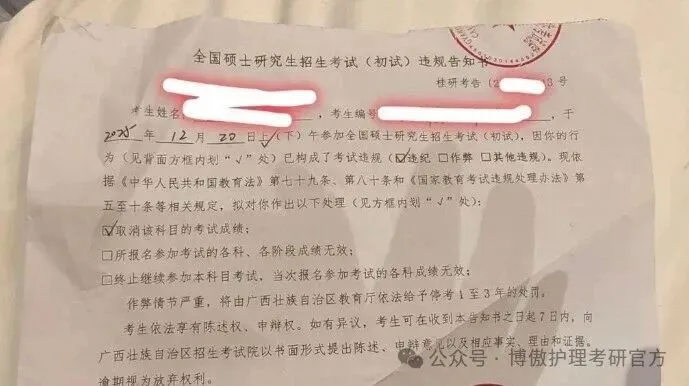 全国硕士研究生招生考试（初试）违规告知书
桂研考告（2 3号
考生姓名: ，考生编号 ，于
2025年12月20日上（下）午参加全国硕士研究生招生考试（初试），因你的行
为（见背面方框内划“√”处）已构成了考试违规（☑违纪 □作弊 □其他违规）。现依
据《中华人民共和国教育法》第七十九条、第八十条和《国家教育考试违规处理办法》第
五至十条等相关规定，拟对你作出以下处理（见方框内划“√”处）：
☑取消该科目的考试成绩；
□所报名参加考试的各科、各阶段成绩无效；
□终止继续参加本科目考试，当次报名参加考试的各科成绩无效；
作弊情节严重，将由广西壮族自治区教育厅依法给予停考1至3年的处罚。
考生依法享有陈述权、申辩权。如有异议，考生可在收到本告知书之日起7日内，向
广西壮族自治区招生考试院以书面形式提出陈述、申辩意见以及相应事实、理由和证据。
逾期视为放弃权利。
公众号·博傲护理考研官方